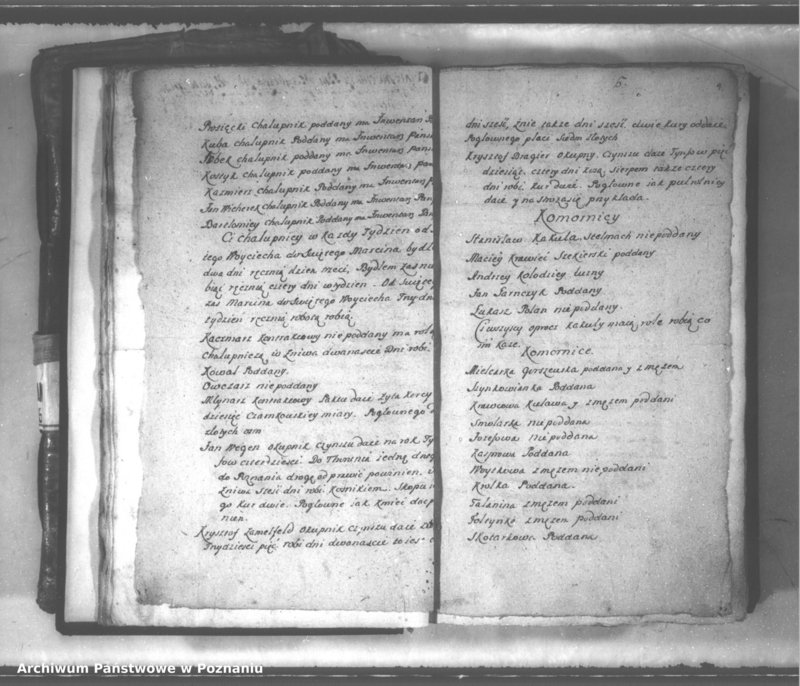 Chałupnik poddany ma Inwentarz
Kuba chałupnik Poddany ma Inwentarz
Sobek chałupnik poddany ma Inwentarz
Kostyk chałupnik poddany ma Inwentarz
Kazmierz chałupnik Poddany ma Inwentarz
Jan Wicherek chałupnik Poddany ma Inwentarz
Bartłomiey chałupnik Poddany ma Inwentarz
Ci chałupnicy w kazdy tydzien od
tego Woyciecha do Swiętego Marcina
dwa dni ręczną dzien trzeci, Bydłem
ręczną cztery dni w tydzien. Od
zas Marcina do Swiętego Woyciecha
tydzien ręczną robotą robią.
Kaczmarz kontraktowy nie poddany ma rolą
Chałupniczą w zniwa dwanascie dni robi.
Kowal Poddany.
Owczarz nie poddany
Młynarz kontraktowy daie zyta
dziesięć Czarnkowskiey miary. Pogłownego
złotych osm
Jan Wegen okupnik czynszu daie na rok
fow czterdziesci. Do iedną drogę
do Poznania drogę odprawić powinien.
zniwa szesć dni robi kosnikiem.
go kur dwie. Pogłowne iak kmieć
nien.
Krysztof okupnik czynszu daie
Trzydziesci pięć robi dni dwanascie to iest
6.
dni szesć, żnie takze dni szesć. dwie kury oddaie
Pogłownego płaci siedm złotych
Krysztof okupny. Czynszu daie Tynfow pięć
dziesiąt. cztery dni kosą, sierpem takze cztery
dni robi. kur daie. Pogłowne iak pułrolnicy
daie y na przykłada.
Komornicy
Stanisław Kakuła. Stelmach nie poddany
Maciey krawiec poddany
Andrzey kołodziey luzny
Jan Parnczyk Poddany
Łukasz Polan nie poddany.
Ci wszyscy oprocz kakuły maią role robią co
im kaze.
Komornice.
Mielcarka poddana y z męzem
Szynkowianka Poddana
Krawcowa kulawa y z męzem poddani
Smolarka nie poddana
Jozefowa nie poddana
Poddana
Woytkowa z męzem nie poddani
Krolka Poddana.
z męzem poddani
z męzem poddani
Skotarkowa Poddana
Archiwum Państwowe w Poznaniu